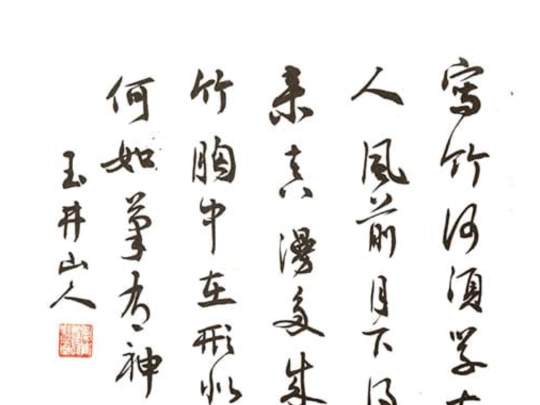 寫竹何須學
人風前月下得
来真漫多成
竹胸中在形似
何如筆有神
玉井山人